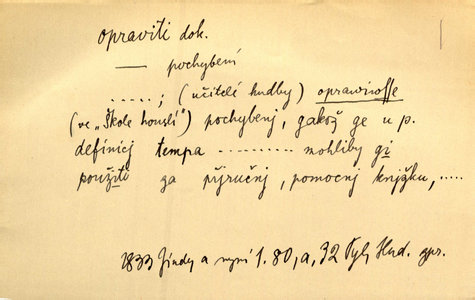 opraviti dok.
— pochybení
.....; (učitelé hudby) oprawiwsse
(ve „Škole houslí") pochybenj, gakož ge u p.
definicj tempa .......... mohliby gi
použíti ga přjručnj, pomocnj knjžku, .....
1833 Jindy a nyní 1. 80, a, 32 Tyl, Hud. zpr.